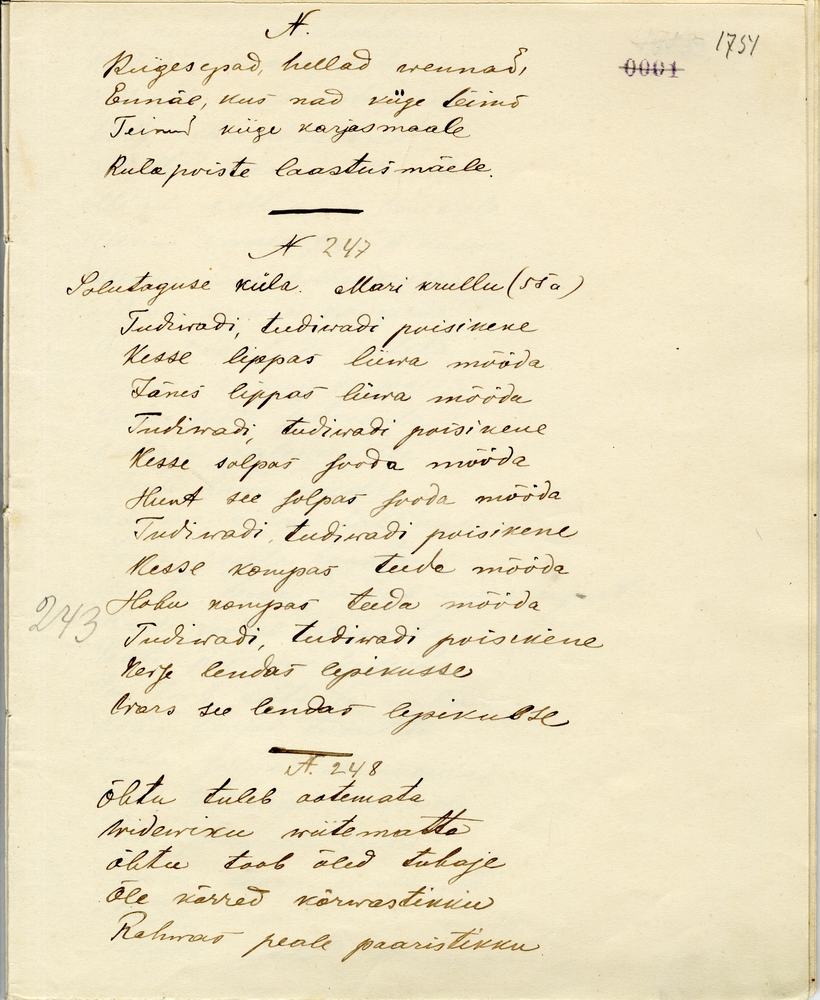 N.
1751
0001
Kiigesepad, hellad wennad,
Ennäe, kus nad kiige teinud
Teinud kiige karjasmaale
Küla poiste laastusmäele.
N 247
Solutaguse küla. Mari Krullu (55 a)
Tudiwadi, tudiwadi poisikene
Kesse lippas liiwa mööda
Jänes lippas liiwa mööda
Tudiwadi, tudiwadi poisikene
Kesse solpas sooda mööda
Hunt see solpas sooda mööda
Tudiwadi, tudiwadi poisikene
Kesse kompas teede mööda
243
Hobu kompas teeda mööda
Tudiwadi, tudiwadi poisikene
Kesse lendas lepikusse
Wars see lendas lepikusse
N. 248
Õhtu tuleb ootemata
Widewiku wiitematta
Õhtu toob õled tubaje
Õle kõrred kõrwastikku
Rahwas peale paaristikku